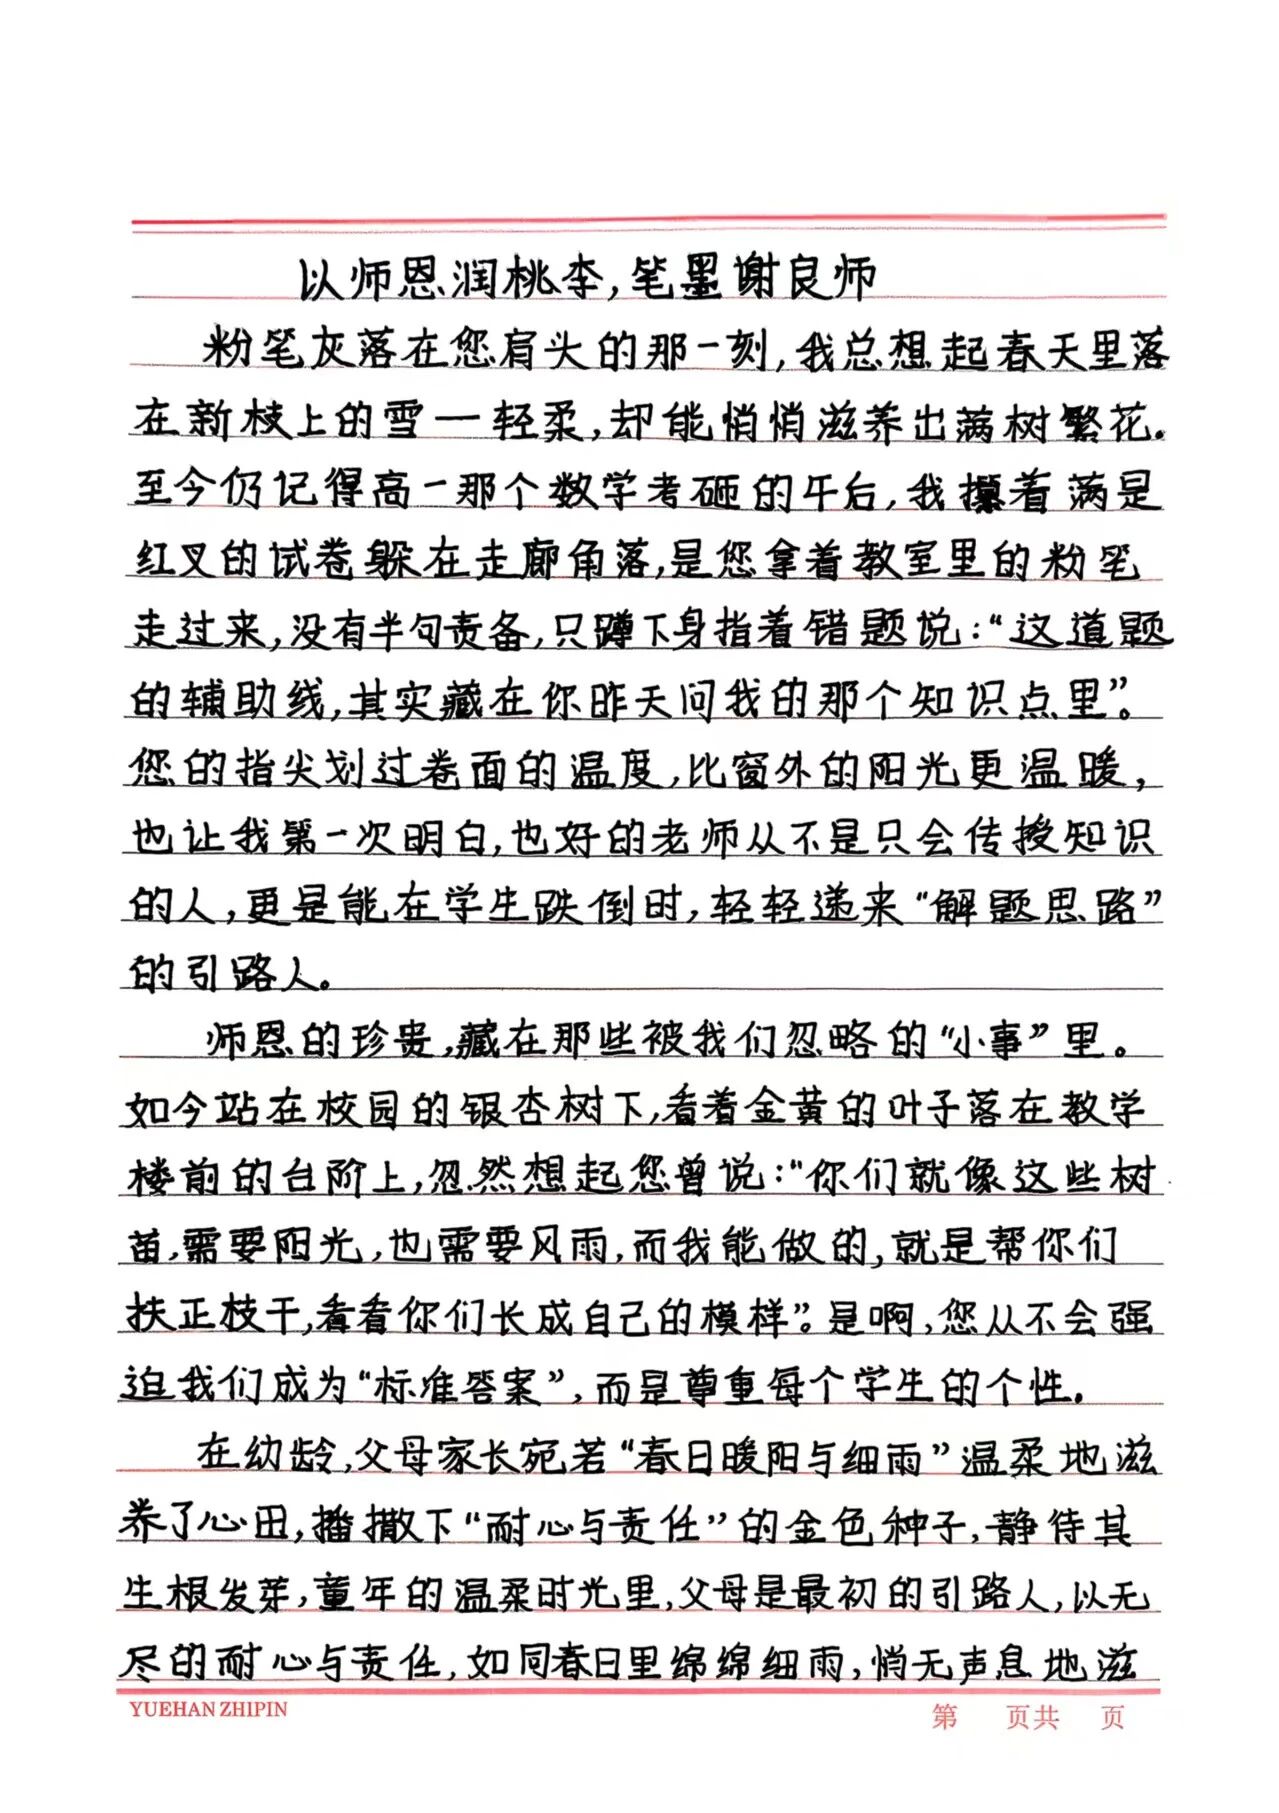 以师恩润桃李,笔墨谢良师
粉笔灰落在您肩头的那一刻,我总想起春天里落
在新枝上的雪一轻柔,却能悄悄滋养出满树繁花.
至今仍记得高一那个数学考砸的午后,我攥着满是
红叉的试卷躲在走廊角落,是您拿着教室里的粉笔
走过来,没有半句责备,只蹲下身指着错题说:“这道题
的辅助线,其实藏在你昨天问我的那个知识点里”。
您的指尖划过卷面的温度,比窗外的阳光更温暖,
也让我第一次明白,也好的老师从不是只会传授知识
的人,更是能在学生跌倒时,轻轻递来“解题思路”
的引路人。
师恩的珍贵,藏在那些被我们忽略的“小事”里。
如今站在校园的银杏树下,看着金黄的叶子落在教学
楼前的台阶上,忽然想起您曾说:“你们就像这些树
苗,需要阳光,也需要风雨,而我能做的,就是帮你们
扶正枝干,看看你们长成自己的模样”。是啊,您从不会强
迫我们成为“标准答案”,而是尊重每个学生的个性.
在幼龄,父母家长宛若“春日暖阳与细雨”温柔地滋
养了心田,播撒下“耐心与责任”的金色种子,静待其
生根发芽,童年的温柔时光里,父母是最初的引路人,以无
尽的耐心与责任,如同春日里绵绵细雨,悄无声息地滋
YUEHAN ZHIPIN
第 页共 页